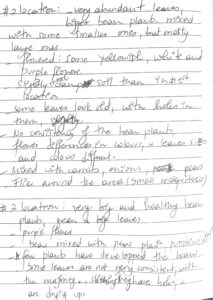 #2 location: very abundant leaves,
bigger bean plants. mixed
with some smaller ones, but mostly
large ones
flowered: some yellowish, white and
purple flower
soil than in #1st
location
some leaves look old, with holes in
them,
No consistency of the bean plants,
flower differences in colours, & leaves size
and colour different.
Mixed with carrots, onions, peas
Flies around the area (small mosquitoes)
#3 location: very big and healthy bean
plants, green & big leaves
purple flowers
bean mixed with peas plants, pumpkin
* few plants have developed the beans
some leaves are not very consistent, with
the majority. they have holes,
are dried up